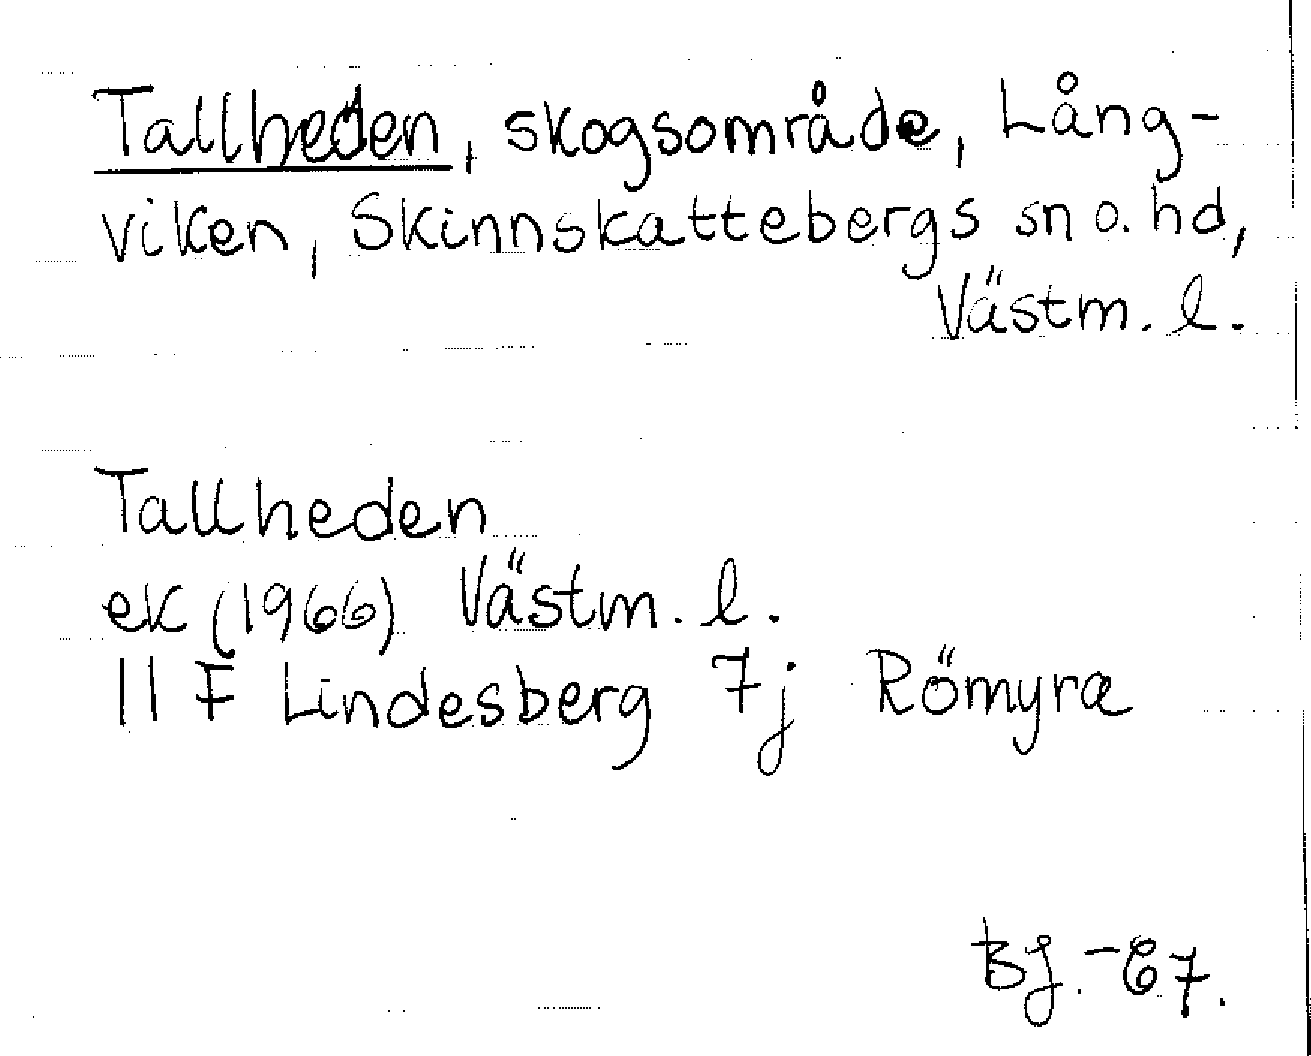 Tallheden, skogsområde, Lång-
viken, Skinnskattebergs sn o. hd,
Västm. l.
Tallheden
ek (1966) Västm. l.
11 F Lindesberg 7j Römyra
BJ.-67.